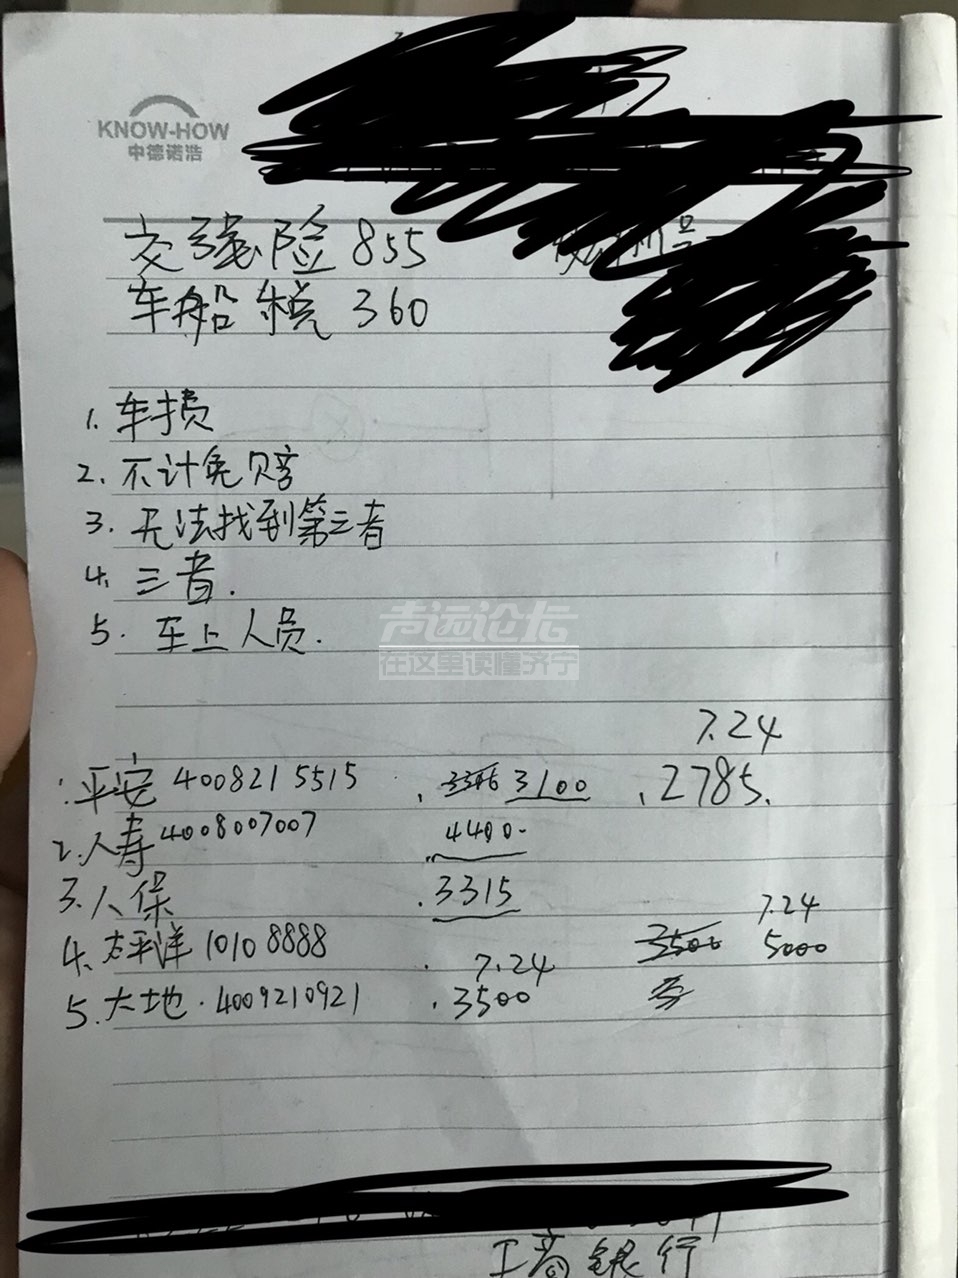 KNOW-HOW
中德诺浩
交强险 855
车船税 360
1. 车损
2. 不计免赔
3. 无法找到第三者
4. 三者.
5. 车上人员.
声远论坛
在这里读懂济宁
7.24
1.平安 4008215515 3100 2785.
2.人寿 4008007007 4400
3.人保 3315
7.24
4.太平洋 10108888 3500 5000
7.24
5.大地.4009210921 3500
工商银行